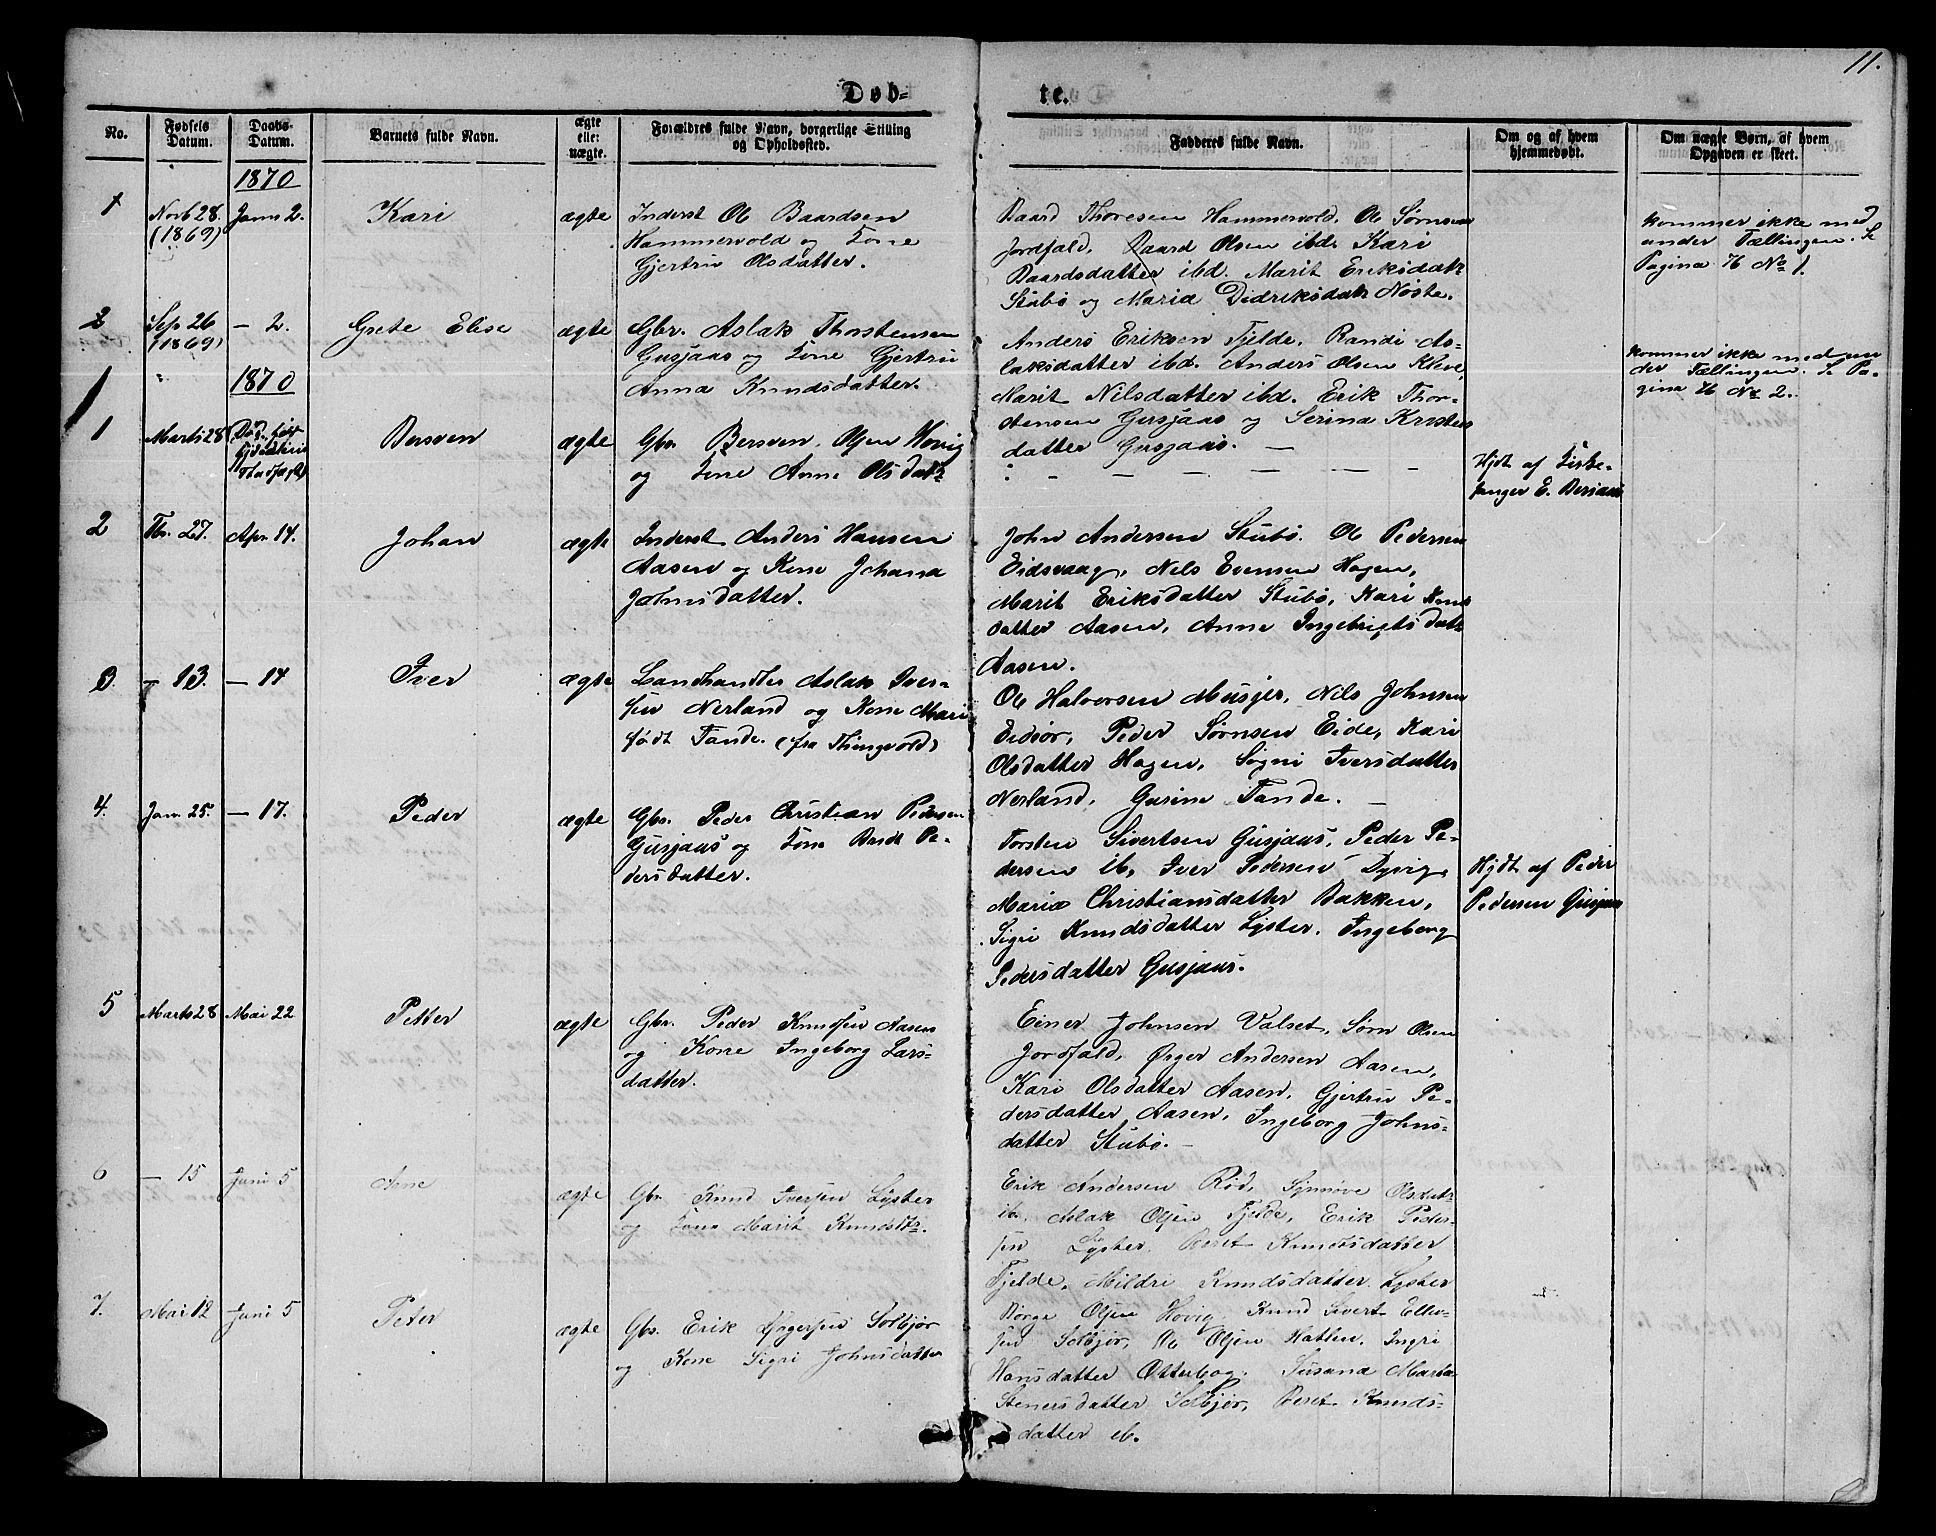 11.
Døb-
te.
No.
Fødsels Datum.
Daabs- Datum.
Barnets fulde Navn.
ægte eller uægte.
Forældres fulde Navn, borgerlige Stilling og Opholdssted.
Fadderes fulde Navn.
Om og af hvem hjemmedøbt.
Om uægte Børn, af hvem Opgaven er skeet.
1870
1
Novb 28. (1869)
Janu 2.
Kari
ægte
Inderst Ole Baardsen
Hammervold og Kone
Gjertru Olsdatter.
Baard Thoresen Hammervold. Ole Sørnsen
Jordfald, Baard Olsen ibd. Kari
Baardsdatter ibd. Marit Eriksdatr
Stubø og Maria Didriksdatr Nøste.
kommer ikke med
under Tællingen. Se
Pagina 76 No 1.
2
Sep. 26 (1869)
— 2.
Grete Elise
ægte
Gbr. Aslak Thorstensen
Gusjaas og Kone Gjertru
Anna Knudsdatter.
Anders Eriksen Fjelde, Randi As-
laksdatter ibd. Anders Olsen Kleve,
Marit Nilsdatter ibd. Erik Thor-
stensen Gusjaas og Serina Kristens
datter Gusjaas. —
kommer ikke med un
der Tællingen. Se Pa-
gina 76 No 2.
1870
1
Marts 28
Bersven
ægte
Gbr. Bersven Olsen Hovig
og Kone Anne Olsdatr
Hjdt af Kirke-
sanger E. Bersaas
2
Fbr. 27.
Apr. 14.
Johan
ægte
Inderst Anders Hansen
Aasen og Kone Johana
Johnsdatter.
John Andersen Stubø. Ole Pedersen
Eidsvaag, Nils Evensen Hagen,
Marit Eriksdatter Stubø, Kari Knuds
datter Aasen, Anne Ingebrigtsdatr
Aasen.
3.
— 13.
— 14
Iver
ægte
Landhandler Aslak Iver-
sen Nerland og Kone Mari
født Tande. (fra Thingvold)
Ole Halvorsen Musjer, Nils Johnsen
Eidsør, Peder Sørnsen Eide, Kari
Olsdatter Hagen, Søgni Iversdatter
Nerland, Gurine Tande. —
4.
Jan. 25.
— 17.
Peder
ægte
Gbr. Peder Christian Pedersen
Gusjaas og Kone Beret Pe-
dersdatter.
Torsten Sivertsen Gusjaas, Peder Pe-
dersen ib, Iver Pedersen Dyvig,
Maria Christiansdatter Bakken,
Sigri Knudsdatter Lyster. Ingeborg
Pedersdatter Gusjaas.
Hjdt af Peder
Pedersen Gusjaas
5
Marts 28
Mai 22
Petter
ægte
Gbr. Peder Knudsen Aasen
og Kone Ingeborg Lars-
datter.
Einer Johnsen Valset, Sørn Olsen
Jordfald, Ørger Andersen Aasen,
Kari Olsdatter Aasen, Gjertru Pe-
dersdatter Aasen, Ingeborg Johns-
datter Stubø. —
6
— 15
Juni 5
Ane
ægte
Gbr. Knud Iversen Lyster
og Kone Marit Knudsdtr.
Erik Andersen Rød, Synnøve Olsdatr
ib, Aslak Olsen Fjelde, Erik Peder-
sen Lyster. Beret Knudsdatter
Fjelde, Mildri Knudsdatter Lyster
7.
Mai 12
Juni 5
Peter
ægte
Gbr. Erik Ørgersen Solbjør
og Kone Sigri Johnsdatter
Børge Olsen Hovig, Knud Sivert Ellev-
sen Solbjør, Ole Olsen Hatlen. Ingri
Hansdatter Otterbog. Susana Marta
Stenersdatter Solbjør, Beret Knuds-
datter ib.